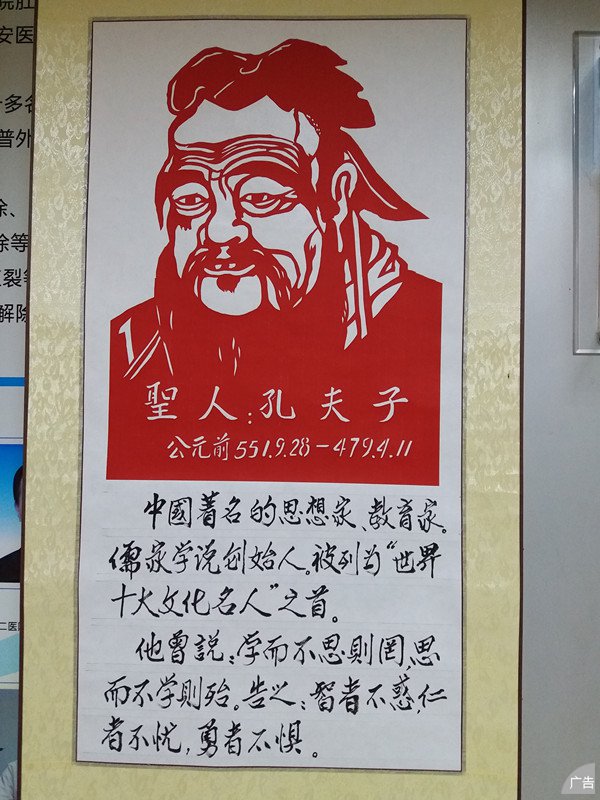 院肛
安医
十多名
普外
除、
除等
裂等
解除
聖人:孔夫子
公元前551.9.28-479.4.11
中國著名的思想家、教育家。
儒家学说创始人。被列为“世界
十大文化名人”之首。
他曾説:学而不思則罔,思
而不学則殆。告之:智者不惑,仁
者不忧,勇者不惧。
仁医
广告